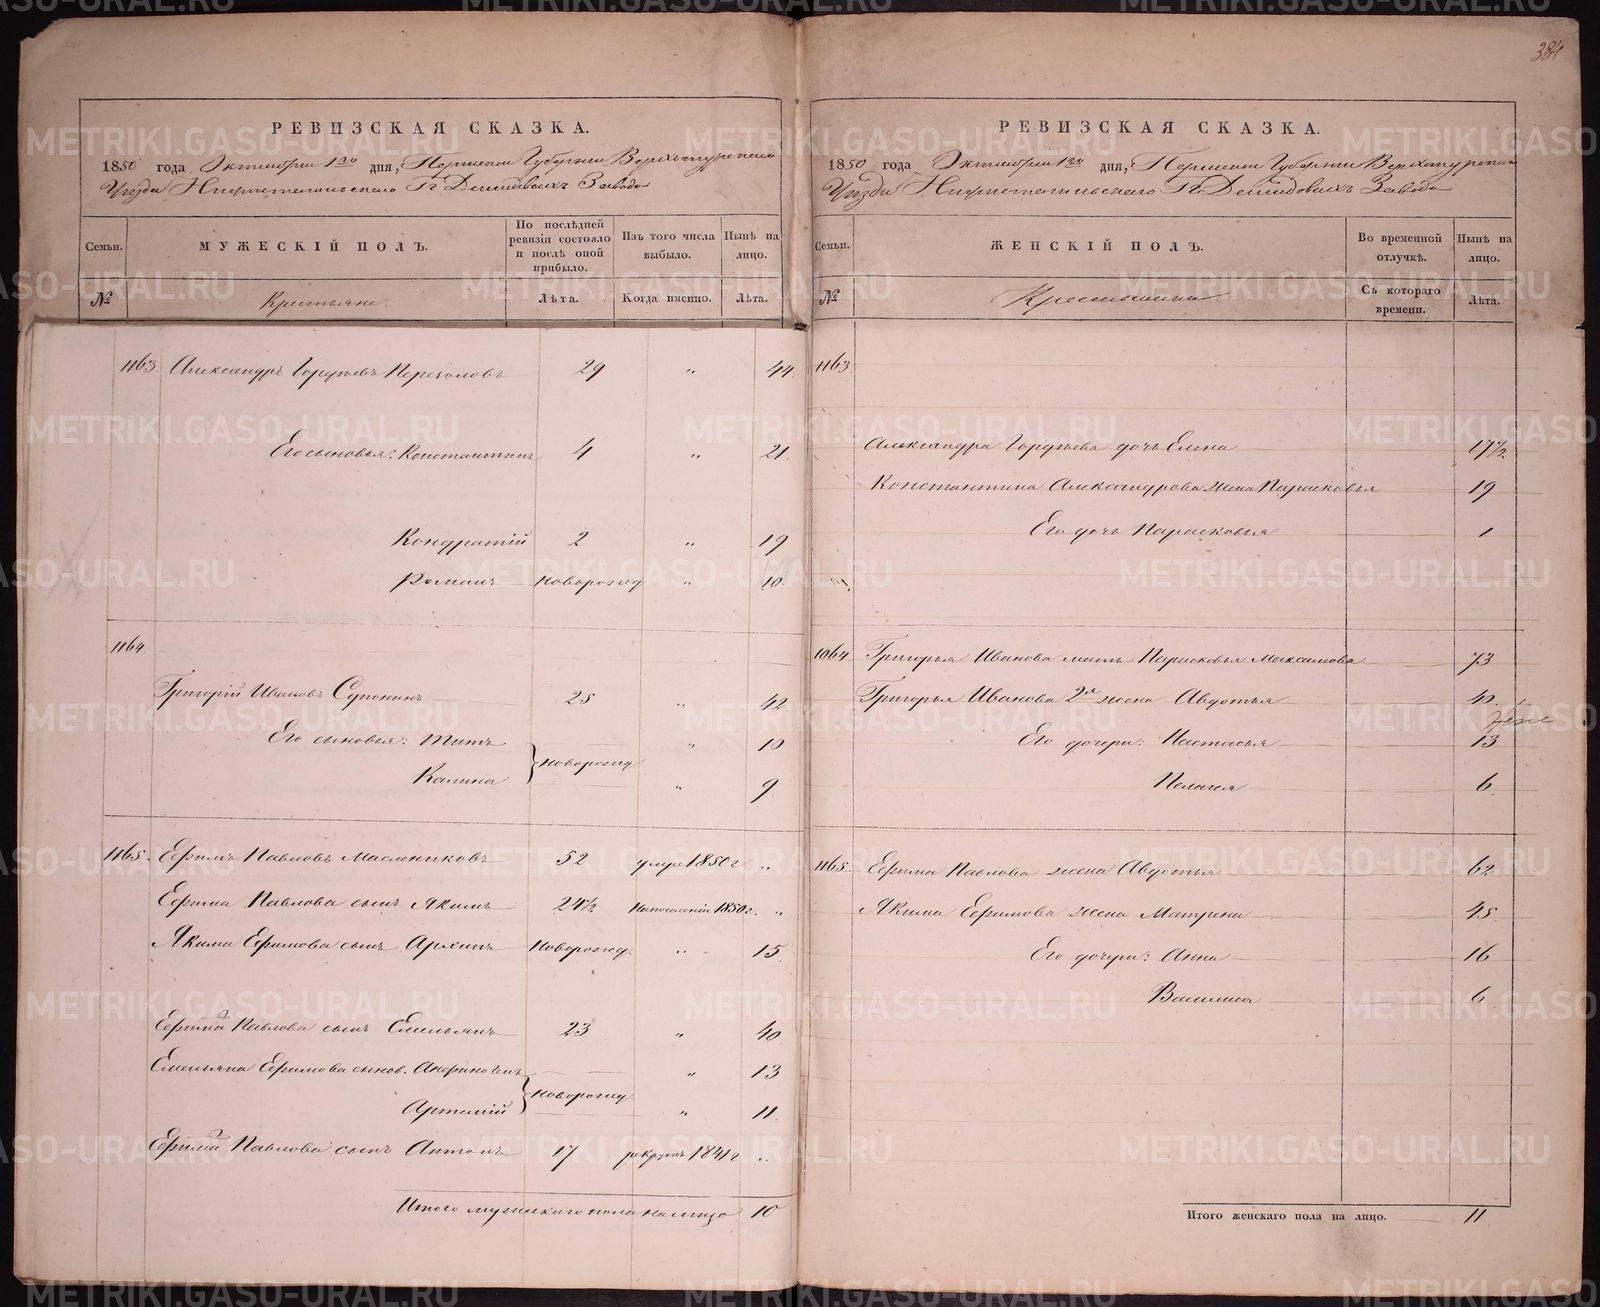 384
РЕВИЗСКАЯ СКАЗКА.
1850 года Октября 1го дня, Пермской Губернiи Верхотурскаго
Уѣзда Нижнетагильскаго Гг. Демидовыхъ Завода
Семьи.
МУЖЕСКIЙ ПОЛЪ.
По послѣдней ревизiи состояло и послѣ оной прибыло.
Изъ того числа выбыло.
Нынѣ на лицо.
№
Крестьяне.
Лѣта.
Когда именно.
Лѣта.
1163 Александръ Гордѣевъ 29 „ 44.
Его сыновья: Константинъ 4 „ 21.
Кондратiй 2 „ 19
Романъ новорожд „ 10.
1164.
Григорiй Ивановъ 25 „ 42.
Его сыновья: Титъ „ 10
} новорожд
Калина „ 9.
1165. Ефимъ Павловъ Маслениковъ 52 умре 1850 г „
Ефима Павлова сынъ Якимъ 24½ На поселенiи 1850 г. „
Якима Ефимова сынъ Архипъ Новорожд. „ 15.
Ефима Павлова сынъ Емельянъ 23 „ 40
Емельяна Ефимова сынов. „ 13
} новорожд.
Артемiй „ 11.
Ефима Павлова сынъ Антонъ 17 рекрутъ 1841 г „
Итого мужескаго пола на лицо 10
РЕВИЗСКАЯ СКАЗКА.
1850 года Октября 1го дня, Пермской Губернiи Верхотурскаго
Уѣзда Нижнетагильскаго Гг. Демидовыхъ Завода
Семьи.
ЖЕНСКIЙ ПОЛЪ.
Во временной отлучкѣ.
Нынѣ на лицо.
№
Крестьянки
Съ котораго времени.
Лѣта.
1163.
Александра Гордѣева дочь Елена 17½.
Константина Александрова жена Парасковья 19
Его дочь Парасковья 1
1064. Григорья Иванова мать Парасковья Максимова 73
Григорья Иванова 2я жена Авдотья 42.
Его дочери: Настасья 13
Пелагея 6
1165. Ефима Павлова жена Авдотья 62
Якима Ефимова жена Матрена 45.
Его дочери: Анна 16
Василиса 6
Итого женскаго пола на лицо. 11
METRIKI.GASO-URAL.RU